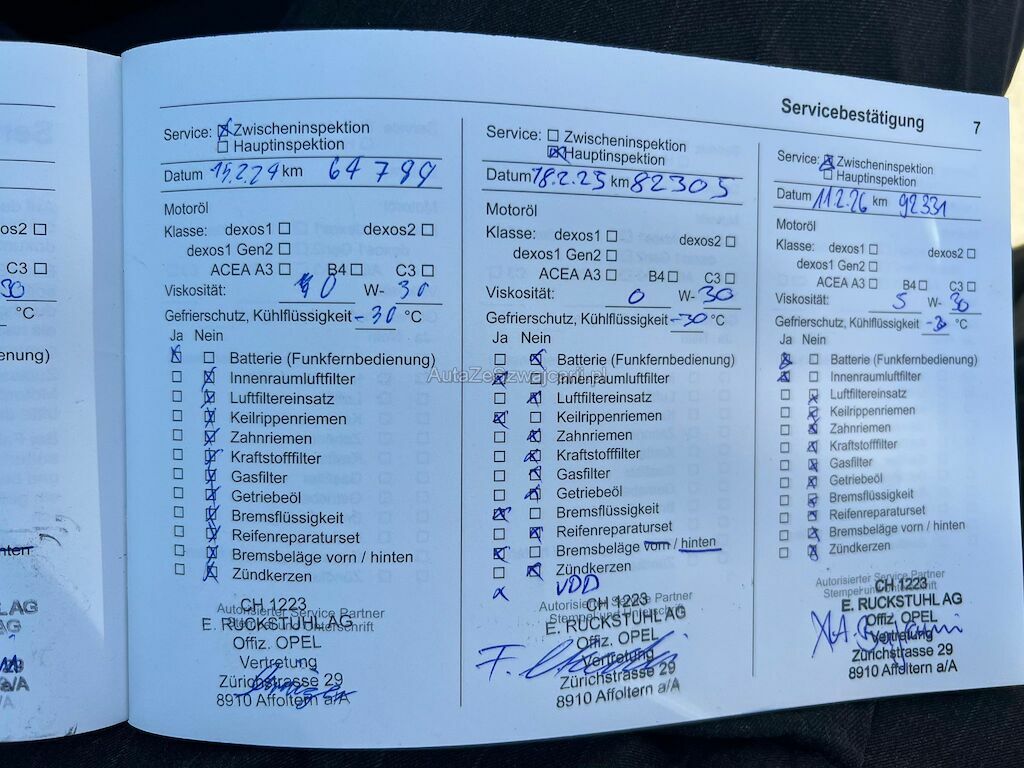 Servicebestätigung 7
Service: Zwischeninspektion
Hauptinspektion
Datum 15.2.24 km 64799
Motoröl
Klasse: dexos1 dexos2
dexos1 Gen2
ACEA A3 B4 C3
Viskosität: 0 W- 30
Gefrierschutz, Kühlflüssigkeit -30 °C
Ja Nein
Batterie (Funkfernbedienung)
Innenraumluftfilter
Luftfiltereinsatz
Keilrippenriemen
Zahnriemen
Kraftstofffilter
Gasfilter
Getriebeöl
Bremsflüssigkeit
Reifenreparaturset
Bremsbeläge vorn / hinten
Zündkerzen
Autorisierter Service Partner
Stempel und Unterschrift
CH 1223
E. RUCKSTUHL AG
Offiz. OPEL
Vertretung
Zürichstrasse 29
8910 Affoltern a/A
Service: Zwischeninspektion
Hauptinspektion
Datum 18.2.25 km 82305
Motoröl
Klasse: dexos1 dexos2
dexos1 Gen2
ACEA A3 B4 C3
Viskosität: 0 W- 30
Gefrierschutz, Kühlflüssigkeit -30 °C
Ja Nein
Batterie (Funkfernbedienung)
Innenraumluftfilter
Luftfiltereinsatz
Keilrippenriemen
Zahnriemen
Kraftstofffilter
Gasfilter
Getriebeöl
Bremsflüssigkeit
Reifenreparaturset
Bremsbeläge vorn / hinten
Zündkerzen
x VDD
Autorisierter Service Partner
Stempel und Unterschrift
CH 1223
E. RUCKSTUHL AG
Offiz. OPEL
Vertretung
Zürichstrasse 29
8910 Affoltern a/A
Service: Zwischeninspektion
Hauptinspektion
Datum 11.2.26 km 92331
Motoröl
Klasse: dexos1 dexos2
dexos1 Gen2
ACEA A3 B4 C3
Viskosität: 5 W- 30
Gefrierschutz, Kühlflüssigkeit -30 °C
Ja Nein
Batterie (Funkfernbedienung)
Innenraumluftfilter
Luftfiltereinsatz
Keilrippenriemen
Zahnriemen
Kraftstofffilter
Gasfilter
Getriebeöl
Bremsflüssigkeit
Reifenreparaturset
Bremsbeläge vorn / hinten
Zündkerzen
Autorisierter Service Partner
Stempel und Unterschrift
CH 1223
E. RUCKSTUHL AG
Offiz. OPEL
Vertretung
Zürichstrasse 29
8910 Affoltern a/A
AutaZeSzwajcarii.pl